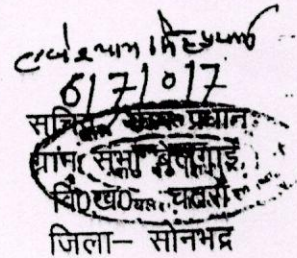 6/7/017
सचिव प्रधान
ग्राम सभा बेलगाई
वि0ख0 चतरा
जिला– सोनभद्र